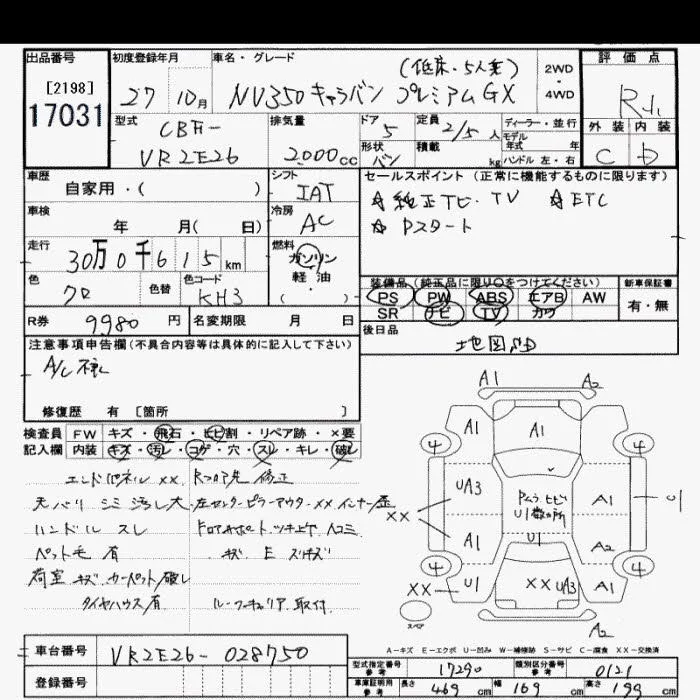 出品番号 初度登録年月 車名・グレード 評価点
[2198] (低床・5人乗) 2WD
17031 27 10月 NV350キャラバン プレミアムGX ・ 4WD
型式 排気量 ドア 定員 ディーラー・並行
CBF- 5 2/5人 モデル 年式 年 外装 内装
VR2E26 2000cc 形状 積載 kg ハンドル 左・右 C D
バン
車歴 シフト セールスポイント(正常に機能するものに限ります)
自家用・( ) IAT ☆純正ナビ・TV ☆ETC
車検 冷房 ☆Pスタート
年 月( 日) AC
走行 燃料
30万0千615km ガソリン
色 色替 色コード 軽油 装備品(純正品に限り○をつけてください) 新車保証書
クロ KH3 ( ) PS PW ABS エアB AW 有・無
R券 9980円 名変期限 月 日 SR ナビ TV カワ
注意事項申告欄(不具合内容等は具体的に記入して下さい) 後日品
A/C 地図
修復歴 有 [箇所 ]
検査員 FW キズ・飛石・ヒビ割・リペア跡・×要
記入欄 内装 キズ・汚レ・コゲ・穴・スレ・キレ・破レ
エンドパネル XX Rフロア先 修正
天バリ シミ 汚レ大 左センターピラーアウターXX インナー歪
ハンドル スレ
ペット毛 有 キズ E
荷室 キズ カーペット破レ
タイヤハウス有 ルーフキャリア 取付
A1 A2
A1 A1
4 4
UA3 A1 U1
XX
A1 U1 A2
4 4
XX U1 XX UA3 A1
スペア A2
A-キズ E-エクボ U-凹み W-補修跡 S-サビ C-腐食 XX-交換済
車台番号 VR2E26-028750 型式指定番号 参考 17290 類別区分番号 参考 0121
登録番号 車庫証明用 参考 長さ 469cm 幅 169cm 高さ 199cm